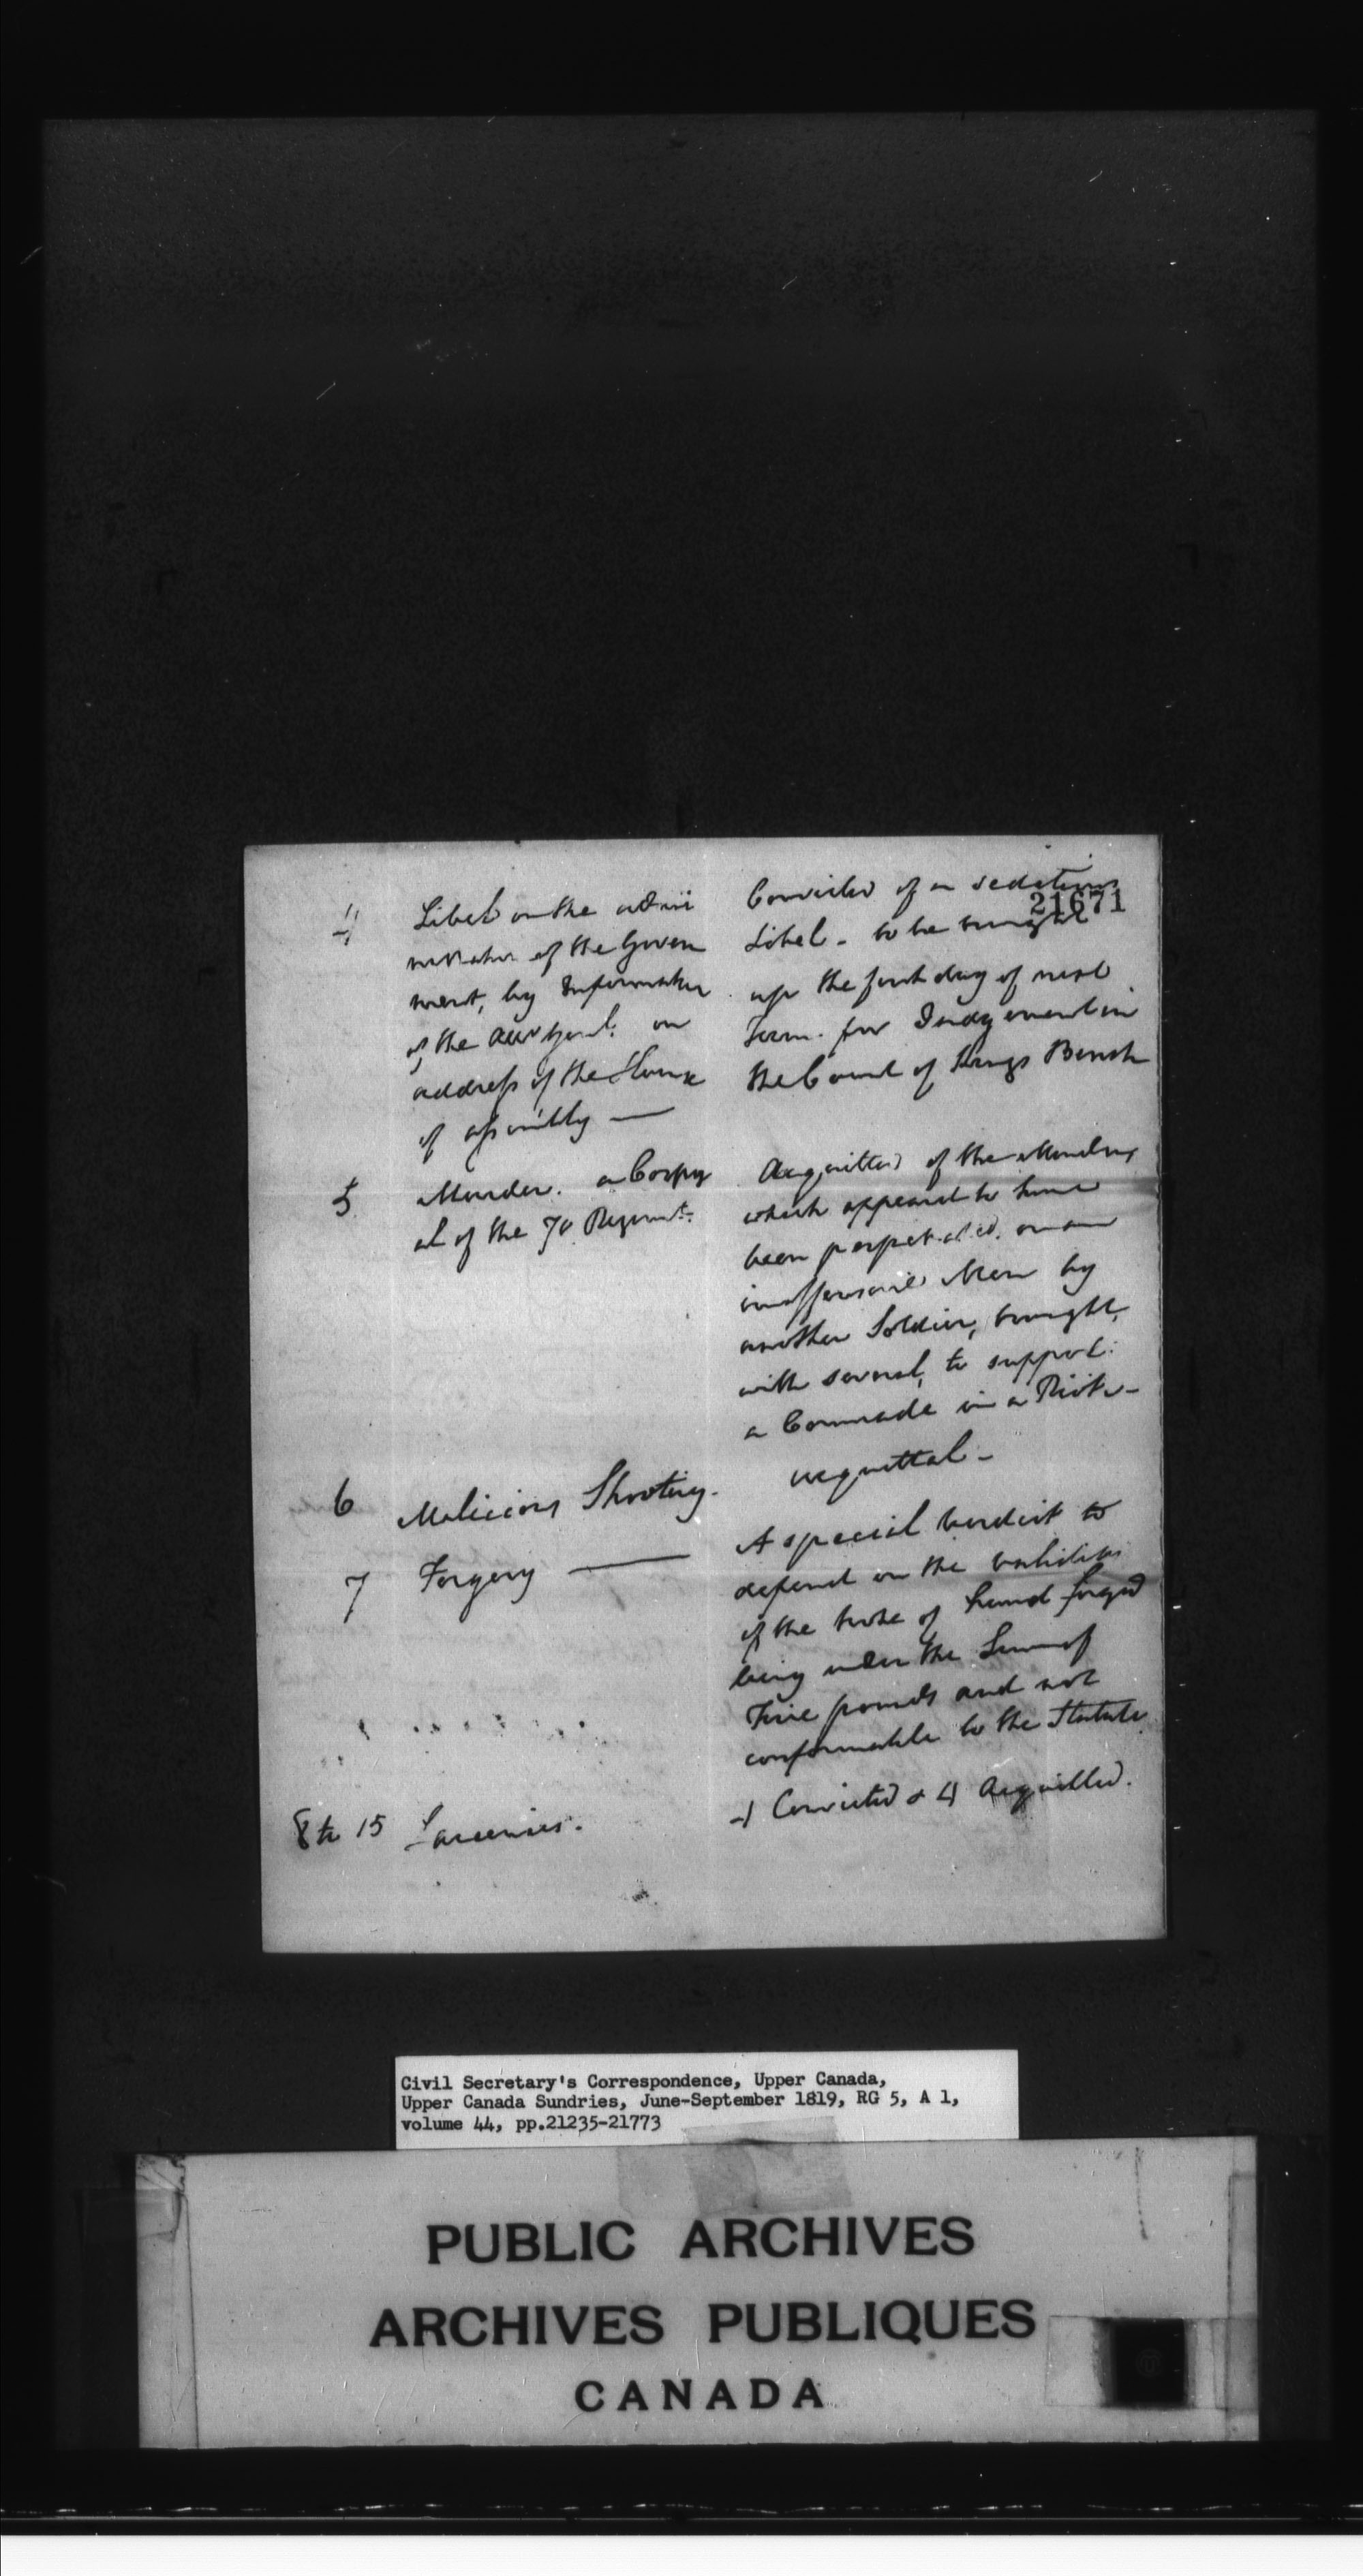 21671
4 Libel on the admi
nistration of the Govern
ment, by Information
of the Att. Genl. on
address of the House
of assembly —
Convicted of a seditious
Libel - to be brought
up the first day of next
Term. for Judgement in
the Court of Kings Bench
5 Murder. a Corpor
al of the 70 Regimt.
Acquitted of the Murder,
which appeared to have
been perpetrated. on an
inoffensive Man by
another Soldier, brought,
with several, to support
a Comrade in a Riot -
6 Malicious Shooting.
acquittal -
7 Forgery —
A special verdict to
depend on the validity
of the Note of hand forged
being under the Sum of
Five pounds and not
conformable to the Statute
8 to 15 Larcenies.
4 Convicted & 4 Acquitted.
Civil Secretary's Correspondence, Upper Canada,
Upper Canada Sundries, June-September 1819, RG 5, A 1,
volume 44, pp.21235-21773
PUBLIC ARCHIVES
ARCHIVES PUBLIQUES
CANADA